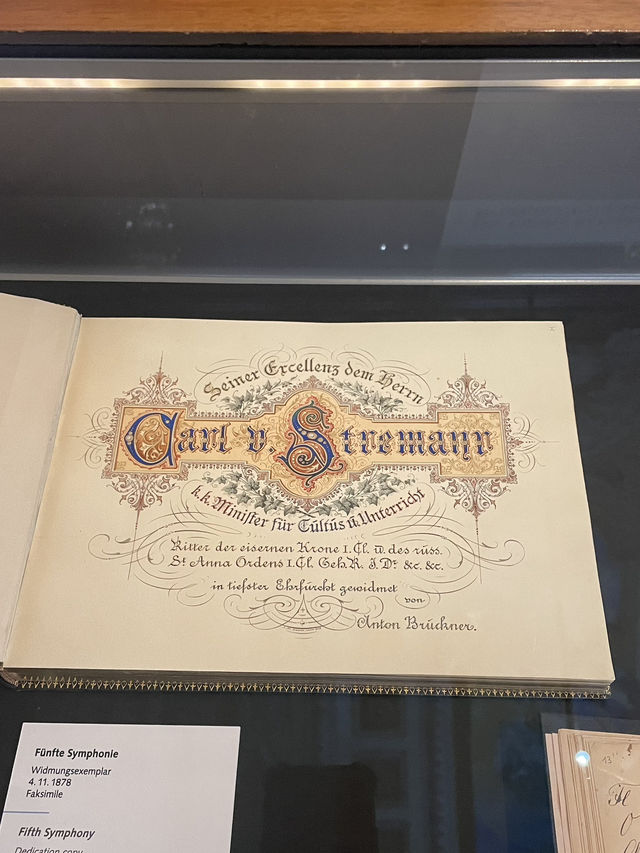 Seiner Excellenz dem Herrn
Carl v. Stremayr
k. k. Minister für Cultus u. Unterricht
Ritter der eisernen Krone I. Cl. u. des russ.
St. Anna Ordens I. Cl. Geh. R. J. Dr. &c. &c.
in tiefster Ehrfurcht gewidmet
von
Anton Bruckner.
Fünfte Symphonie
Widmungsexemplar
4. 11. 1878
Faksimile
Fifth Symphony
Dedication copy
13